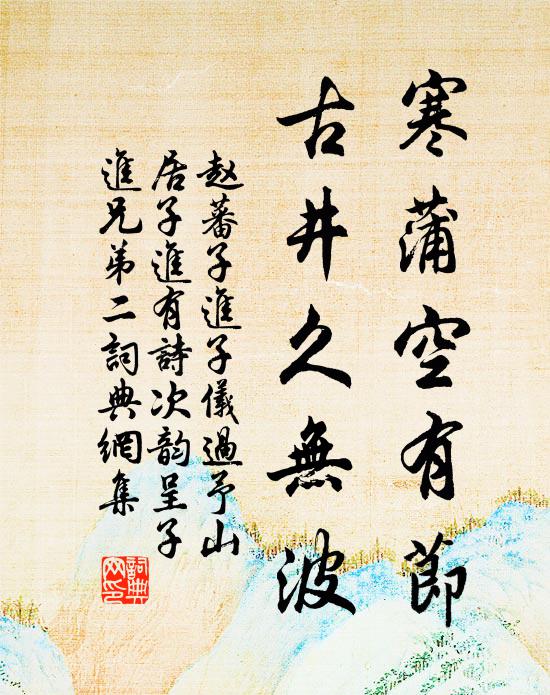 寒蒲空有節
古井久無波
赵蕃子進子儀過予山
居子進有詩次韵呈子
進兄弟二詞典網集
詞典网印